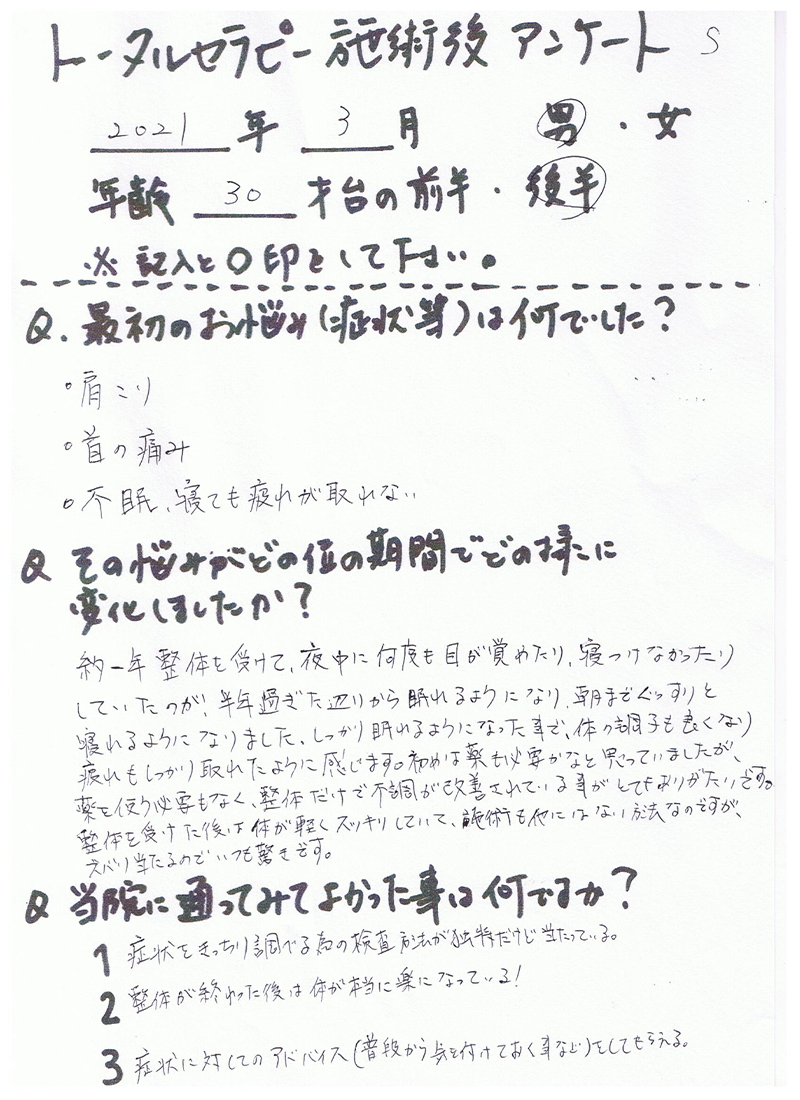 トータルセラピー施術後 アンケート S
2021 年 3 月 男・女
年齢 30 才台の前半・後半
※ 記入と○印をして下さい。
Q. 最初のお悩み(症状等)は何でした?
・肩こり
・首の痛み
・不眠、寝ても疲れが取れない
Q その悩みがどの位の期間でどの様に
変化しましたか?
約一年整体を受けて、夜中に何度も目が覚めたり、寝つけなかったり
していたのが、半年過ぎた辺りから眠れるようになり、朝までぐっすりと
寝れるようになりました、しっかり眠れるようになった事で、体の調子も良くなり
疲れもしっかり取れたように感じます。初めは薬も必要かなと思っていましたが、
薬を使う必要もなく、整体だけで不調が改善されている事がとてもありがたいです。
整体を受けた後は体が軽くスッキリしていて、施術も他にはない方法なのですが、
ズバリ当たるのでいつも驚きです。
Q 当院に通ってみてよかった事は何ですか?
1 症状をきっちり調べる為の検査方法が独特だけど当たっている。
2 整体が終わった後は体が本当に楽になっている!
3 症状に対してのアドバイス(普段から気を付けておく事など)をしてもらえる。